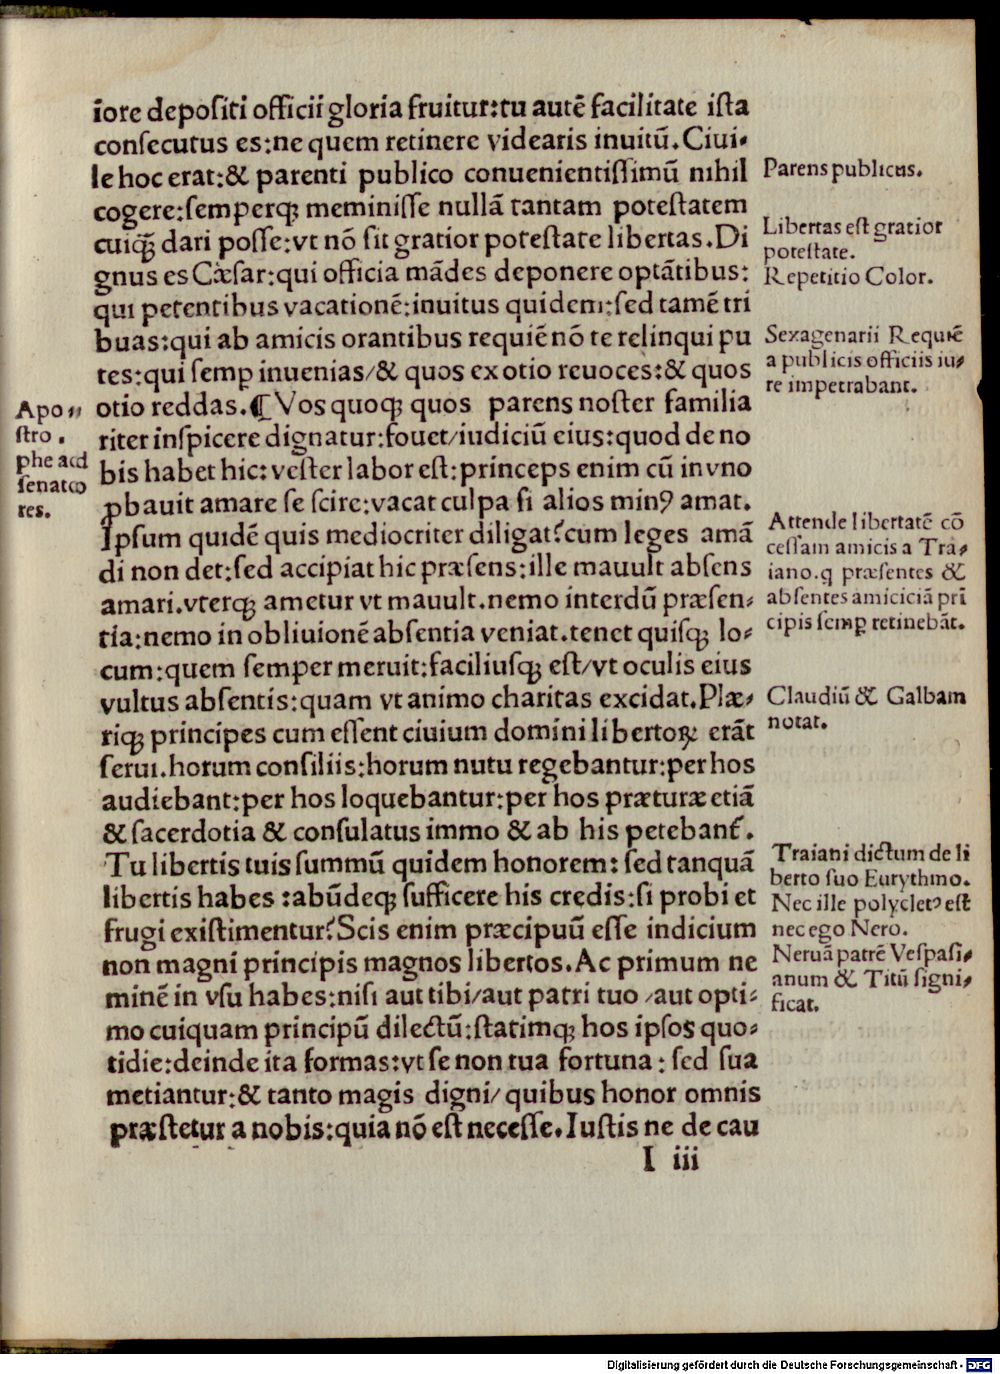 ıore depositi officii gloria fruitur:tu autē facilitate ista
consecutus es:ne quem retinere videaris inuitū.Ciui⸗
le hoc erat:& parenti publico conuenientissimū nihil
cogere:semperq̃ meminisse nullā tantam potestatem
cuiq̃ dari posse:vt nō sit gratior potestate libertas.Di
gnus es Cæsar:qui officia mādes deponere optātibus:
qui petentibus vacationē:inuitus quidem:sed tamē tri
buas:qui ab amicis orantibus requiē nō te relinqui pu
tes:qui semp inuenias/& quos ex otio reuoces:& quos
otio reddas.¶ Vos quoq̃ quos parens noster familia
riter inspicere dignatur:fouet/iudiciū eius:quod de no
bis habet hic:vester labor est:princeps enim cū in vno
ꝓbauit amare se scire:vacat culpa si alios minꝰ amat.
Ipsum quidē quis mediocriter diligat?cum leges amā
di non det:sed accipiat hic præsens:ille mauult absens
amari.vterq̃ ametur vt mauult.nemo interdū præsen⸗
tia:nemo in obliuionē absentia veniat.tenet quisq̃ lo⸗
cum:quem semper meruit:faciliusq̃ est/vt oculis eius
vultus absentis:quam vt animo charitas excidat.Plæ⸗
riq̃ principes cum essent ciuium domini libertoꝝ erāt
serui.horum consiliis:horum nutu regebantur:per hos
audiebant:per hos loquebantur:per hos præturæ etiā
& sacerdotia & consulatus immo & ab his petebant᷑.
Tu libertis tuis summū quidem honorem: sed tanquā
libertis habes :abūdeq̃ sufficere his credis:si probi et
frugi existimentur?Scis enim præcipuū esse indicium
non magni principis magnos libertos.Ac primum ne
minē in vsu habes:nisi aut tibi/aut patri tuo /aut opti⸗
mo cuiquam principū dilectū:statimq̃ hos ipsos quo⸗
tidie:deinde ita formas:vt se non tua fortuna : sed sua
metiantur:& tanto magis digni/ quibus honor omnis
præstetur a nobis:quia nō est necesse.Iustis ne de cau
I iii
Apo⸗
stro.
phe ad
senato
res.
Parens publicus.
Libertas est gratior
potestate.
Repetitio Color.
Sexagenarii Requiē
a publicis officiis iu⸗
re impetrabant.
Attende libertatē cō
cessam amicis a Tra⸗
iano.q præsentes &
absentes amiciciā pri
cipis semp retinebāt.
Claudiū & Galbam
notat.
Traiani dictum de li
berto suo Eurythmo.
Nec ille polycletꝰ est
nec ego Nero.
Neruā patrē Vespasi⸗
anum & Titū signi⸗
ficat.
Digitalisierung gefördert durch die Deutsche Forschungsgemeinschaft - DFG